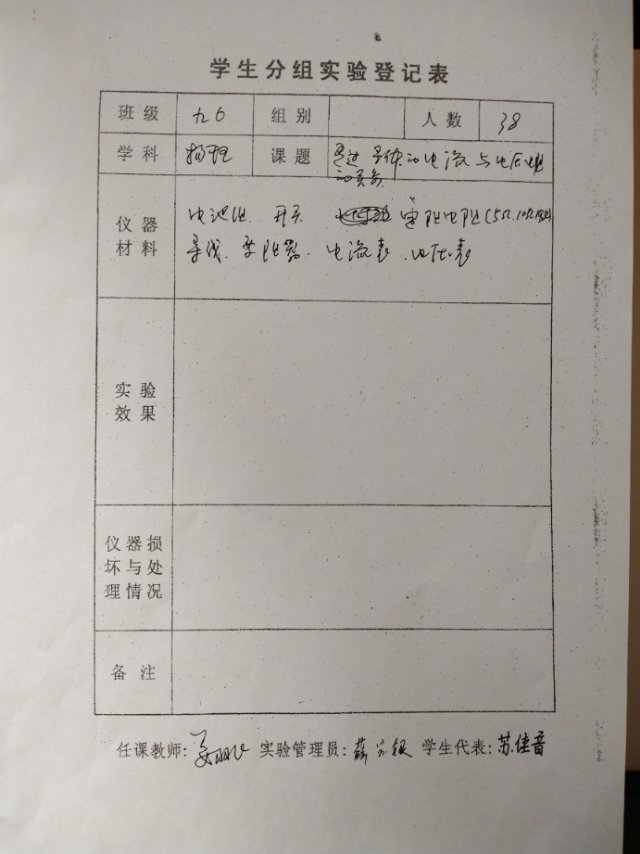 学生分组实验登记表
班级 九6 组别 人数 38
学科 物理 课题 通过导体的电流与电压电阻
的关系
仪器材料 电池组、开关 定阻电阻(5Ω、10Ω
导线、变阻器、电流表、电压表
实验效果
仪器损坏与处理情况
备注
任课教师: 实验管理员: 学生代表: 苏佳音